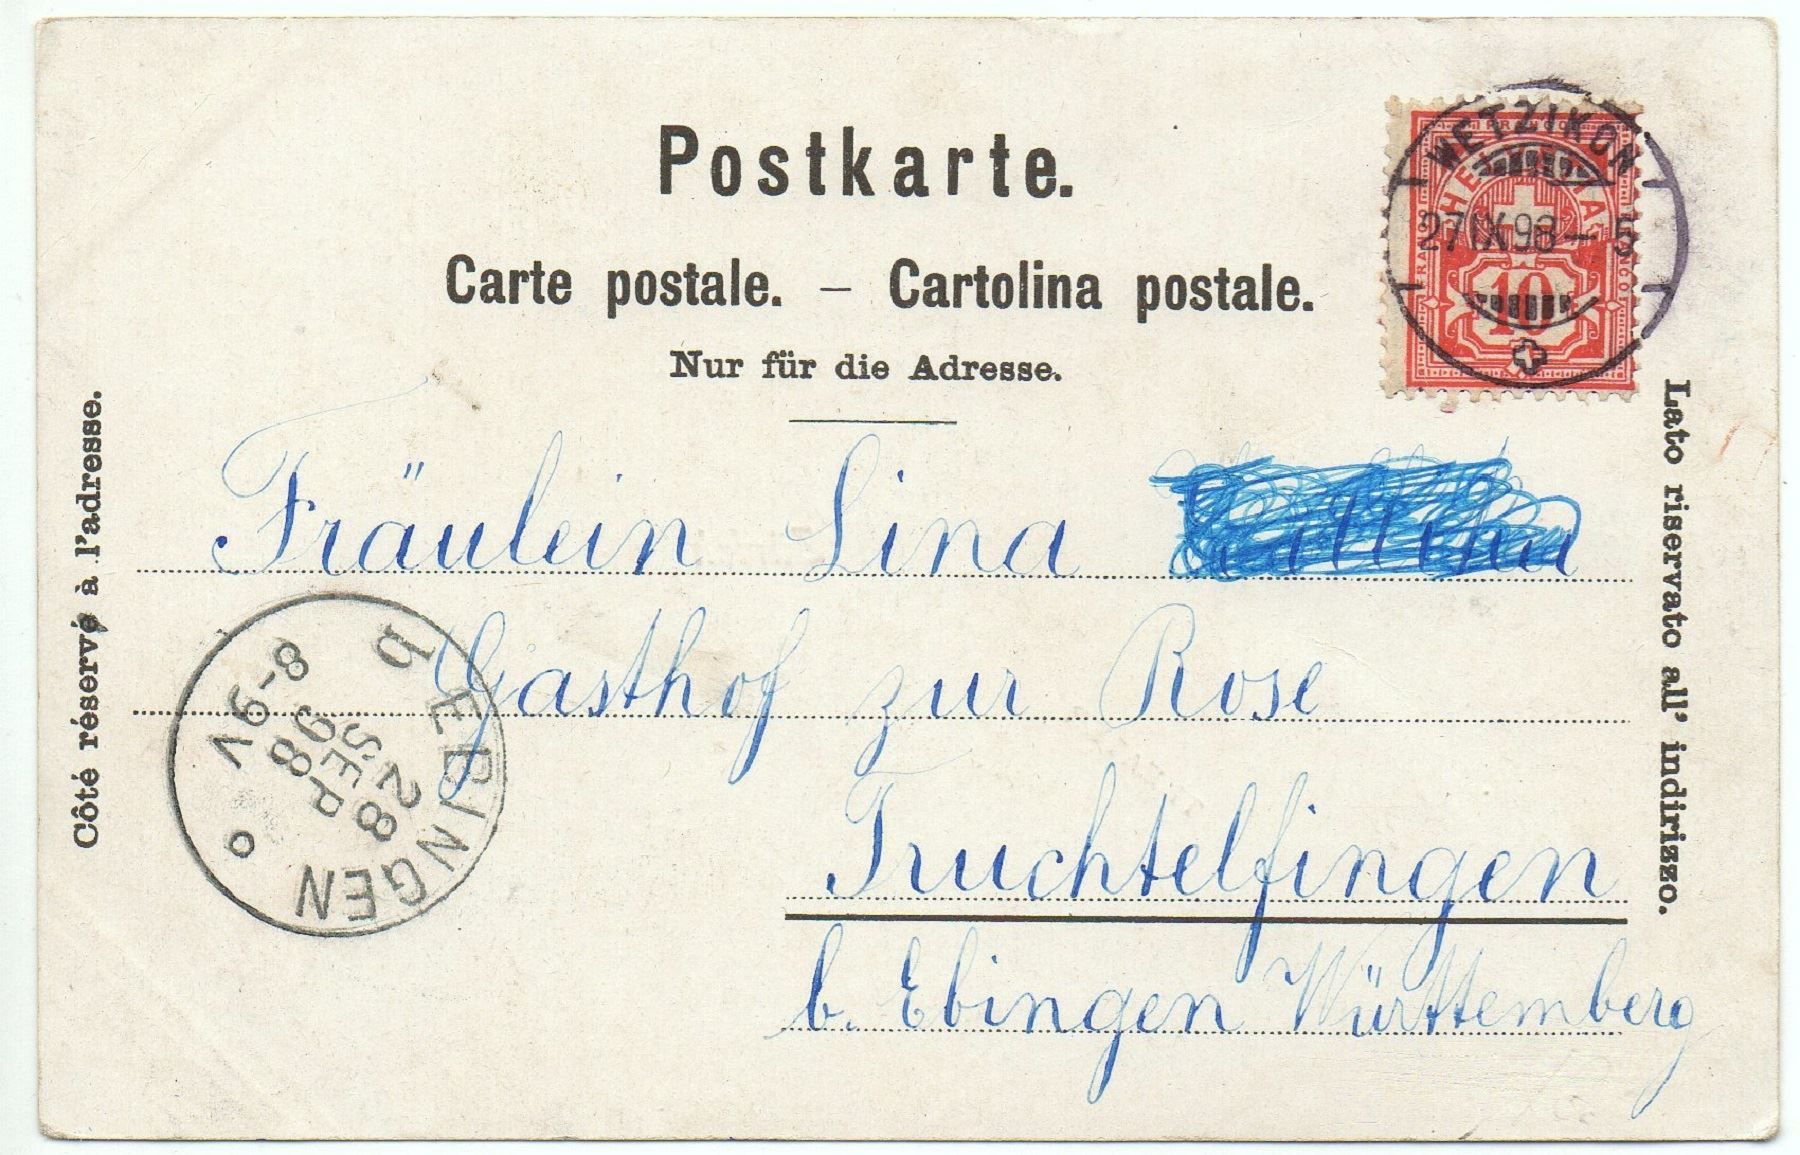 Postkarte.
Carte postale. – Cartolina postale.
Nur für die Adresse.
Côté réservé à l'adresse.
Lato riservato all' indirizzo.
WETZIKON
27 IX 98 – 5
HELVETIA
FRANCO
10
Fräulein Lina
Gasthof zur Rose
Truchtelfingen
b. Ebingen Württemberg
EBINGEN
b
28
SEP
98
8-9V